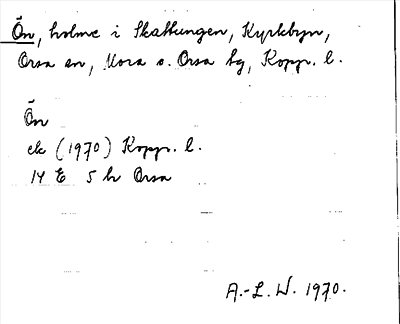 Ön, holme i Skattungen, Kyrkbyn,
Orsa sn, Mora o. Orsa tg, Kopp. l.
Ön
ek (1970) Kopp. l.
14 E 5 h Orsa
A.-L. W. 1970.